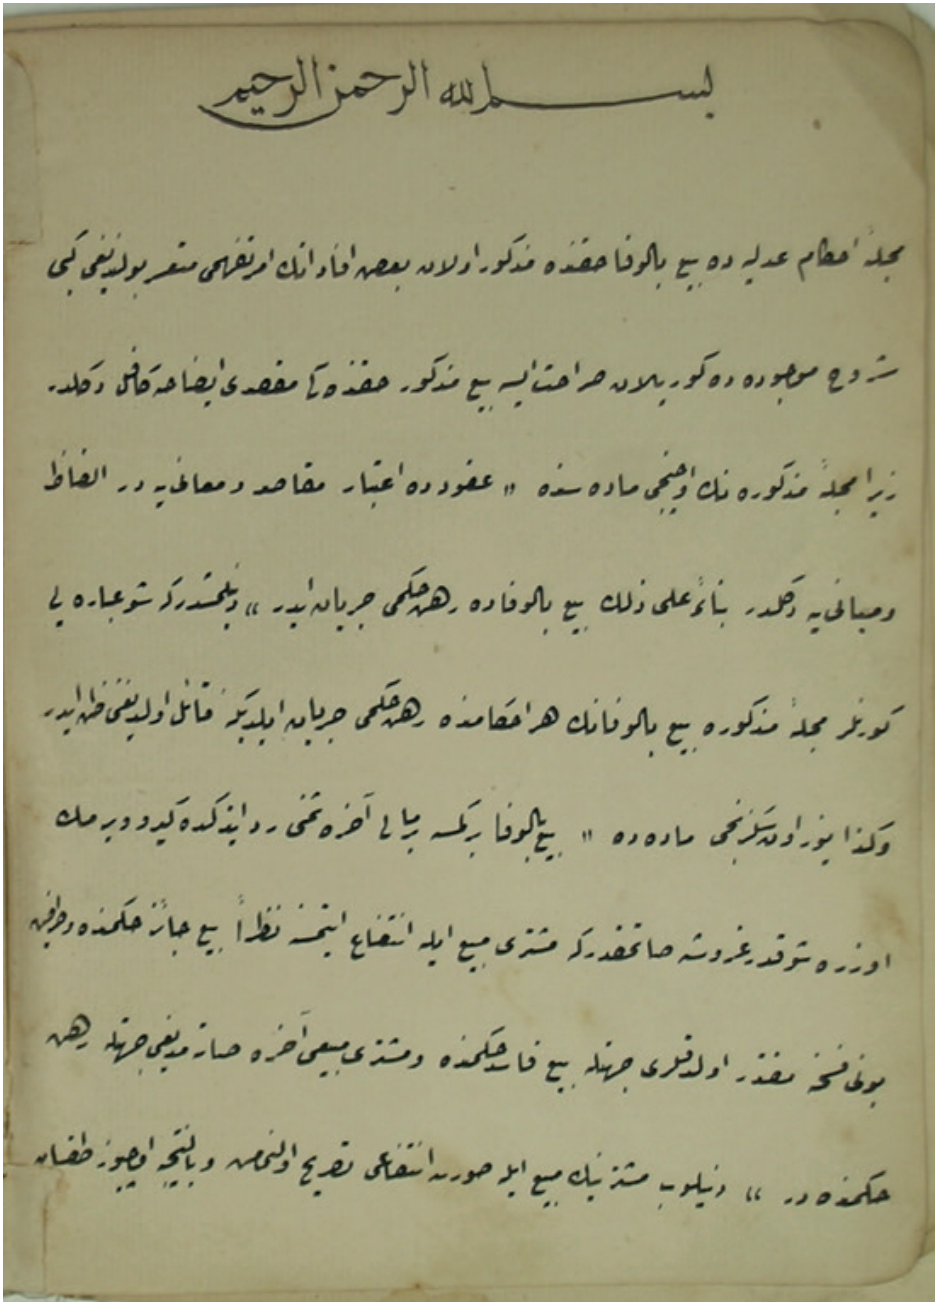 بسم الله الرحمن الرحيم
مجلۀ احكام عدليه ده بيع بالوفا حقنده مذكور اولان بعض افاداتك امر تفهمى متعسر بولنديغى كبى
شروح موجوده ده كوريلان صراحت ايسه بيع مذكور حقنده كى مقصدى ايضاحه كافل دكلدر
زيرا مجلۀ مذكوره نك اوچنجى ماده سنده " عقودده اعتبار مقاصد و معانى يه در الفاظ
و مبانى يه دكلدر بناءً على ذلك بيع بالوفاده رهن حكمى جريان ايدر " دينلمشدركه شو عباره يى
كورنلر مجلۀ مذكوره بيع بالوفانك هر احكامنده رهن حكمى جريان ايلديكنه قائل اولديغنى ظن ايدر
وكذا يوز اون سكزنجى ماده ده " بيع بالوفا بر كمسه بر مالى آخره ثمنى رد ايتدكده كيرو ويرمك
اوزره شو قدر غروشه صاتمقدركه مشترى مبيع ايله انتفاع ايتمسنه نظراً بيع جائز حكمنده و طرفين
بونى فسخه مقتدر اولدقلرى جهتله بيع فاسد حكمنده و مشترى مبيعى آخره صاته مديغى جهتله رهن
حكمنده در " دنيلوب مشترينك مبيع ايله صورت انتفاعى تصريح اولنمامش و بالنتيجه اوچيوز طقسان